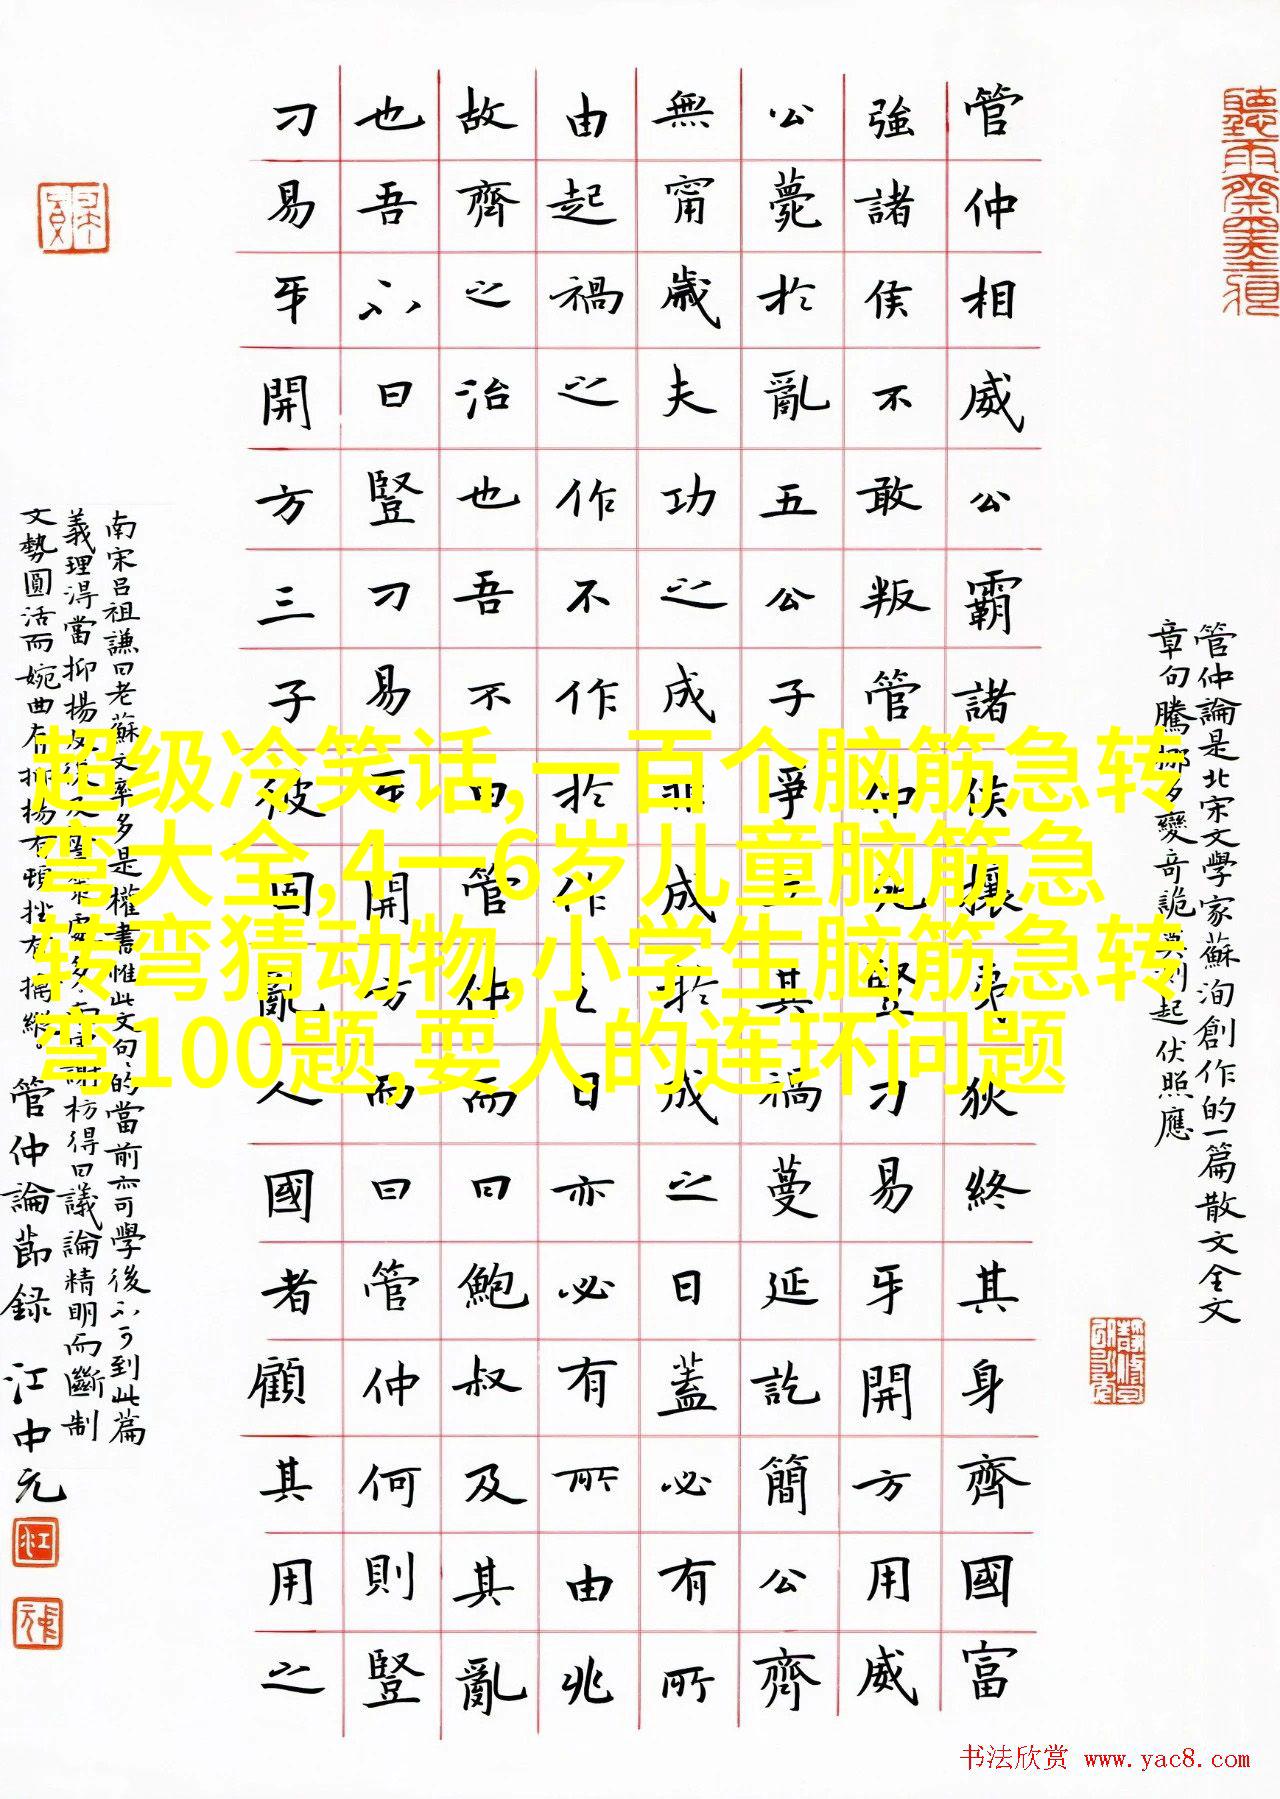 管仲相威公霸諸侯攘夷狄終其身齊國富
強諸侯不敢叛管仲死豎刁易牙開方用威
公薨於亂五公子爭立其禍蔓延訖簡公齊
無甯歲夫功之成非成於成之日蓋必有所
由起禍之作不作於作之日亦必有所由兆
故齊之治也吾不曰管仲而曰鮑叔及其亂
也吾不曰豎刁易牙開方而曰管仲何則豎
刁易牙開方三子彼固亂人國者顧其用之
管仲論是北宋文學家蘇洵創作的一篇散文全文
章句騰挪多變奇詭莫測起伏照應
南宋吕祖謙曰老蘇文率多是權書惟此文句的當前亦可學後不可到此篇
義理淂當抑揚反復及警策處多南宋謝枋得曰議論精明而斷制
文勢圓活而婉曲有抑揚有頓挫有擒縱。
管仲論節録 江中元
超级冷笑话,一百个脑筋急转
弯大全,4一6岁儿童脑筋急
转弯猜动物,小学生脑筋急转
弯100题,耍人的连环问题
书法欣赏 www.yac8.com